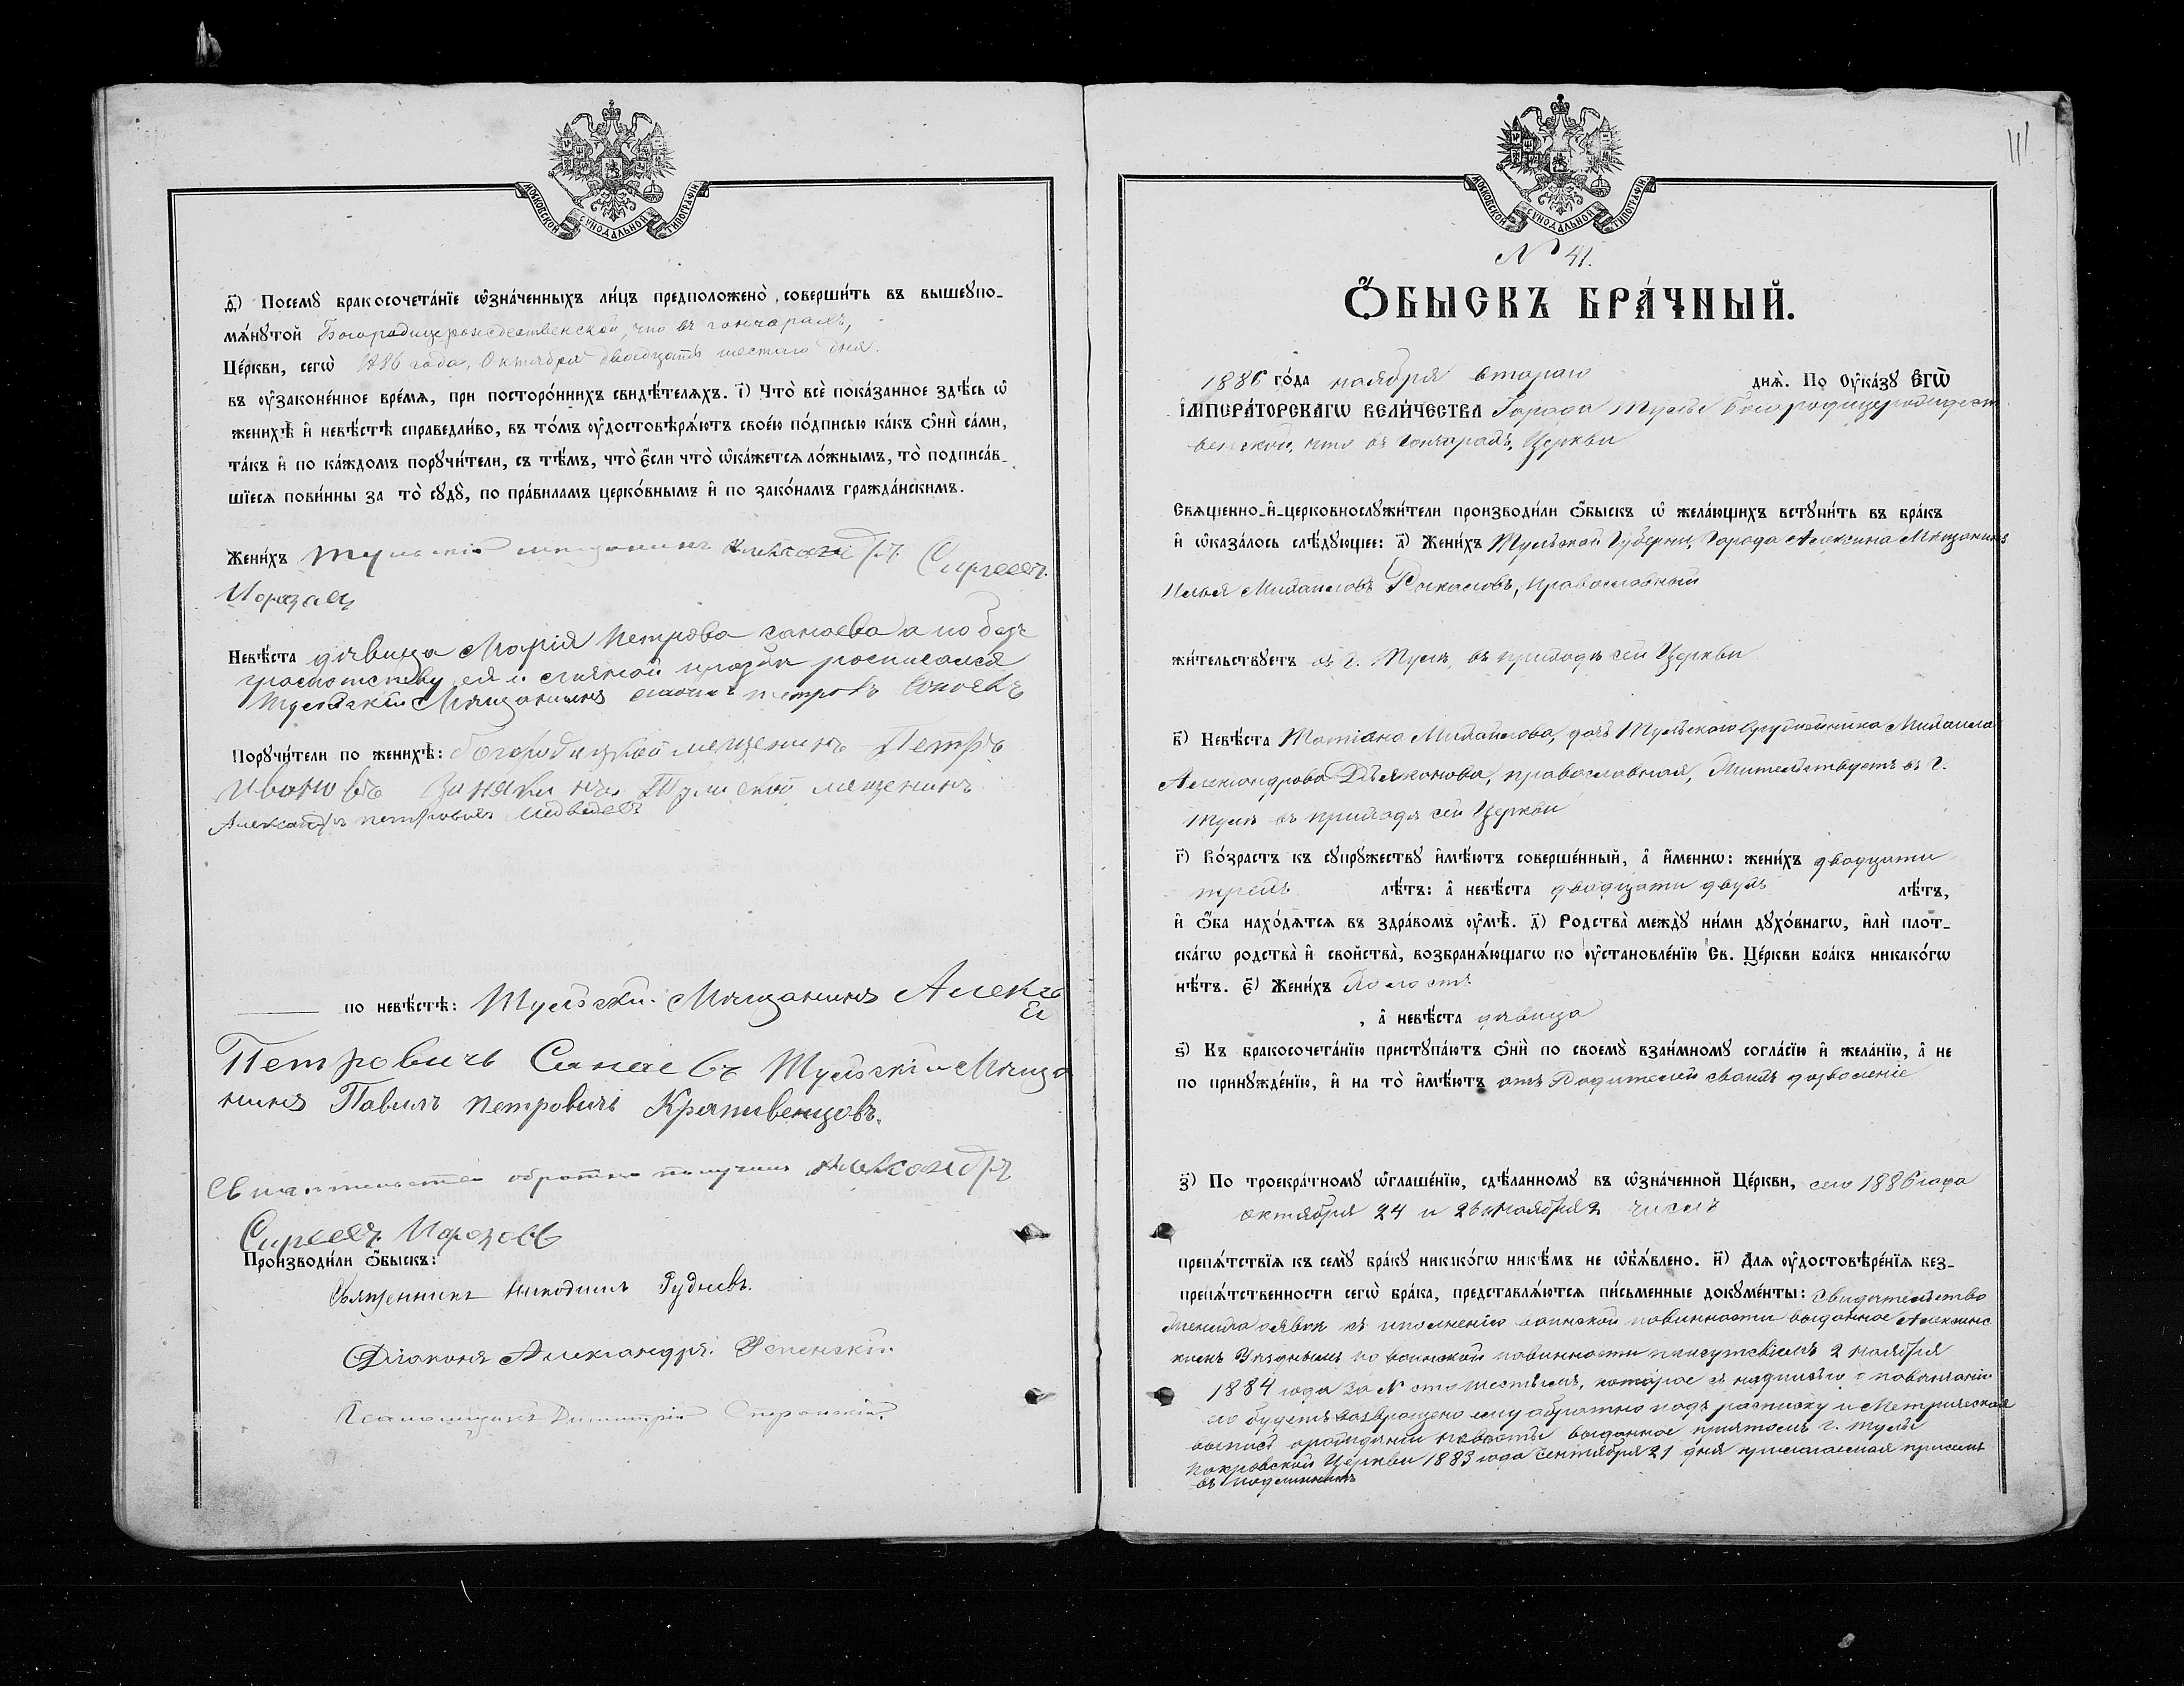 МОСКОВСКОЙ СѴНОДАЛЬНОЙ ТИПОГРАФІИ
д҃) Посемꙋ̀ бракосочета́нїе ѡ҆зна́ченныхъ ли́цъ предположено̀ соверши́ть въ вышеꙋпо-
мѧ́нꙋтой Богородицерождественской, что въ гончарахъ,
Це́ркви, сегѡ̀ 1886 года, Октября двадцать шестаго дня.
въ ᲂу҆законе́нное вре́мѧ, при посторо́ннихъ свидѣ́телѧхъ. і҃) Что̀ всѐ пока́занное здѣ́сь ѡ҆
женихѣ̀ и҆ невѣ́стѣ справедли́во, въ то́мъ ᲂу҆достовѣрѧ́ютъ свое́ю по́дписью ка́къ ѻ҆нѝ са́ми,
та́къ и҆ по ка́ждомъ порꙋчи́тели, съ тѣ́мъ, что̀ є҆́сли что̀ ѡ҆ка́жетсѧ ло́жнымъ, то̀ подписа́в-
шїесѧ пови́нны за то̀ сꙋдꙋ̀, по пра́виламъ церко́внымъ и҆ по зако́намъ гражда́нскимъ.
Жени́хъ тульскій мещанинъ Александръ Сиргеевъ
Морозовъ
Невѣ́ста дѣвица Марія Петрова санаева а по без
грамотству ея и личной прозбѣ росписался
Тульскій Мѣщанинъ петровъ Санаевъ
Порꙋчи́тели по женихѣ̀: богородицкой мещенинъ Петръ
Ивановъ Тулиской мещенинъ
Александръ петровичъ Медведевъ
по невѣ́стѣ: Тульскій Мѣщанинъ Алексѣ
Ей
Петровичъ Санаевъ Тульскій Мѣща
нинъ Павилъ петровичъ Крапивенцовъ.
обратно получилъ Александръ
Сиргеевъ Морозовъ
Производи́ли ѻ҆́быскъ:
Священникъ Никодимъ Рудневъ.
Діаконъ Александръ Успенскій.
Псаломщикъ Димитрій Сперанскій.
111
МОСКОВСКОЙ СѴНОДАЛЬНОЙ ТИПОГРАФІИ
№ 41.
Ѻ҆́БЫСКЪ БРА́ЧНЫЙ.
1886 го́да ноября втораго днѧ̀. По Оу҆ка́зꙋ Є҆гѡ̀
І҆мпера́торскагѡ вели́чества Города Тулы Богородицерождест
венской, что въ гончарахъ, Церкви
Свѧще́нно-и҆-церковнослꙋжи́тели производи́ли ѻ҆́быскъ ѡ҆ жела́ющихъ встꙋпи́ть въ бра́къ
и҆ ѡ҆каза́лось слѣ́дꙋющее: а҃) Жени́хъ Тульской Губерни, Города Алексина Мѣщанинъ
Илья Михаиловъ православный
жи́тельствꙋетъ въ г. Тулѣ, въ приходѣ сей Церкви
в҃) Невѣ́ста Татіана Михайлова, дочь Тульскаго Михаила
Александрова Дьяконова, православная, жительствуетъ въ г.
Тулѣ въ приходѣ сей Церкви
г҃) Во́зрастъ къ сꙋпрꙋ́жествꙋ и҆мѣ́ютъ соверше́нный, а҆ и҆́меннѡ: жени́хъ двадцати
трехъ лѣ́тъ: а҆ невѣ́ста двадцати двухъ лѣ́тъ,
и҆ ѻ҆́ба нахо́дѧтсѧ въ здра́вомъ ᲂу҆мѣ̀. д҃) Родства̀ междꙋ̀ ни́ми дꙋхо́внагѡ, и҆лѝ пло́т-
скагѡ родства̀ и҆ свойства̀, возбранѧ́ющагѡ по ᲂу҆становле́нїю Св. Це́ркви бра́къ никако́гѡ
нѣ́тъ. є҃) Жени́хъ холостъ
, а҆ невѣ́ста дѣвица
ѕ҃) Къ бракосочета́нїю пристꙋпа́ютъ ѻ҆нѝ по своемꙋ̀ взаи́мномꙋ согла́сїю и҆ жела́нїю, а҆ не
по принꙋжде́нїю, и҆ на то̀ и҆мѣ́ютъ отъ Родителей своихъ дозволеніе
з҃) По троекра́тномꙋ ѡ҆глаше́нїю, сдѣ́ланномꙋ въ ѡ҆зна́ченной Це́ркви, сего 1886 года
октября 24 и 26 и ноября 2 числъ
препѧ́тствїѧ къ семꙋ̀ бра́кꙋ никако́гѡ никѣ́мъ не ѡ҆б̾ѧ́влено. и҃) Длѧ ᲂу҆достовѣре́нїѧ без-
препѧ́тственности сегѡ̀ бра́ка, представлѧ́ютсѧ пи́сьменные докꙋме́нты: свидѣтельство
жениха о явкѣ къ исполненію воинской повинности выданное Алексинс
кимъ Уѣзднымъ по воинской повинности присутствіемъ 2 ноября
1884 года за N сто шестымъ, которое съ надписью о повѣнчаніи
его будетъ возвращено ему обратно подъ расписку и Метрическая
выпись о рожденіи невѣсты выданное причтомъ г. Тулы
покровской Церкви 1883 года сентября 21 дня прилагаемая присемъ
въ подлинникѣ